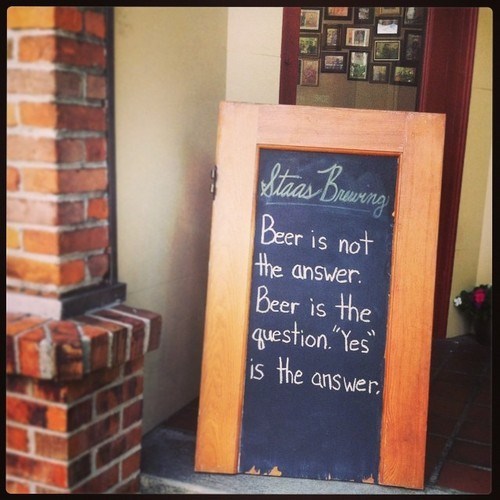 Staas Brewing
Beer is not
the answer.
Beer is the
question. "Yes"
is the answer.